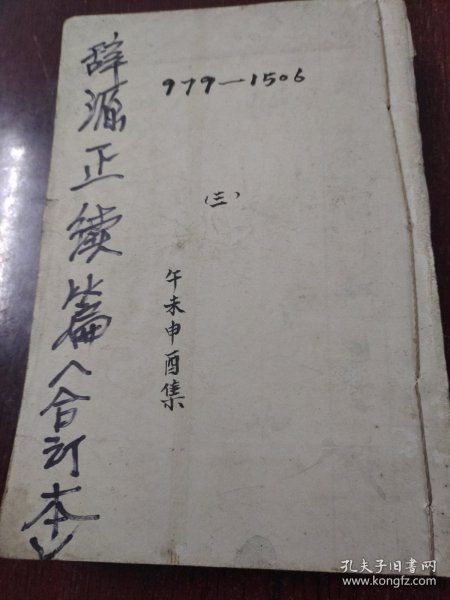 辞源正续篇(合订本)
979—1506
(三)
午未申酉集
孔夫子旧书网
www.kongfz.com